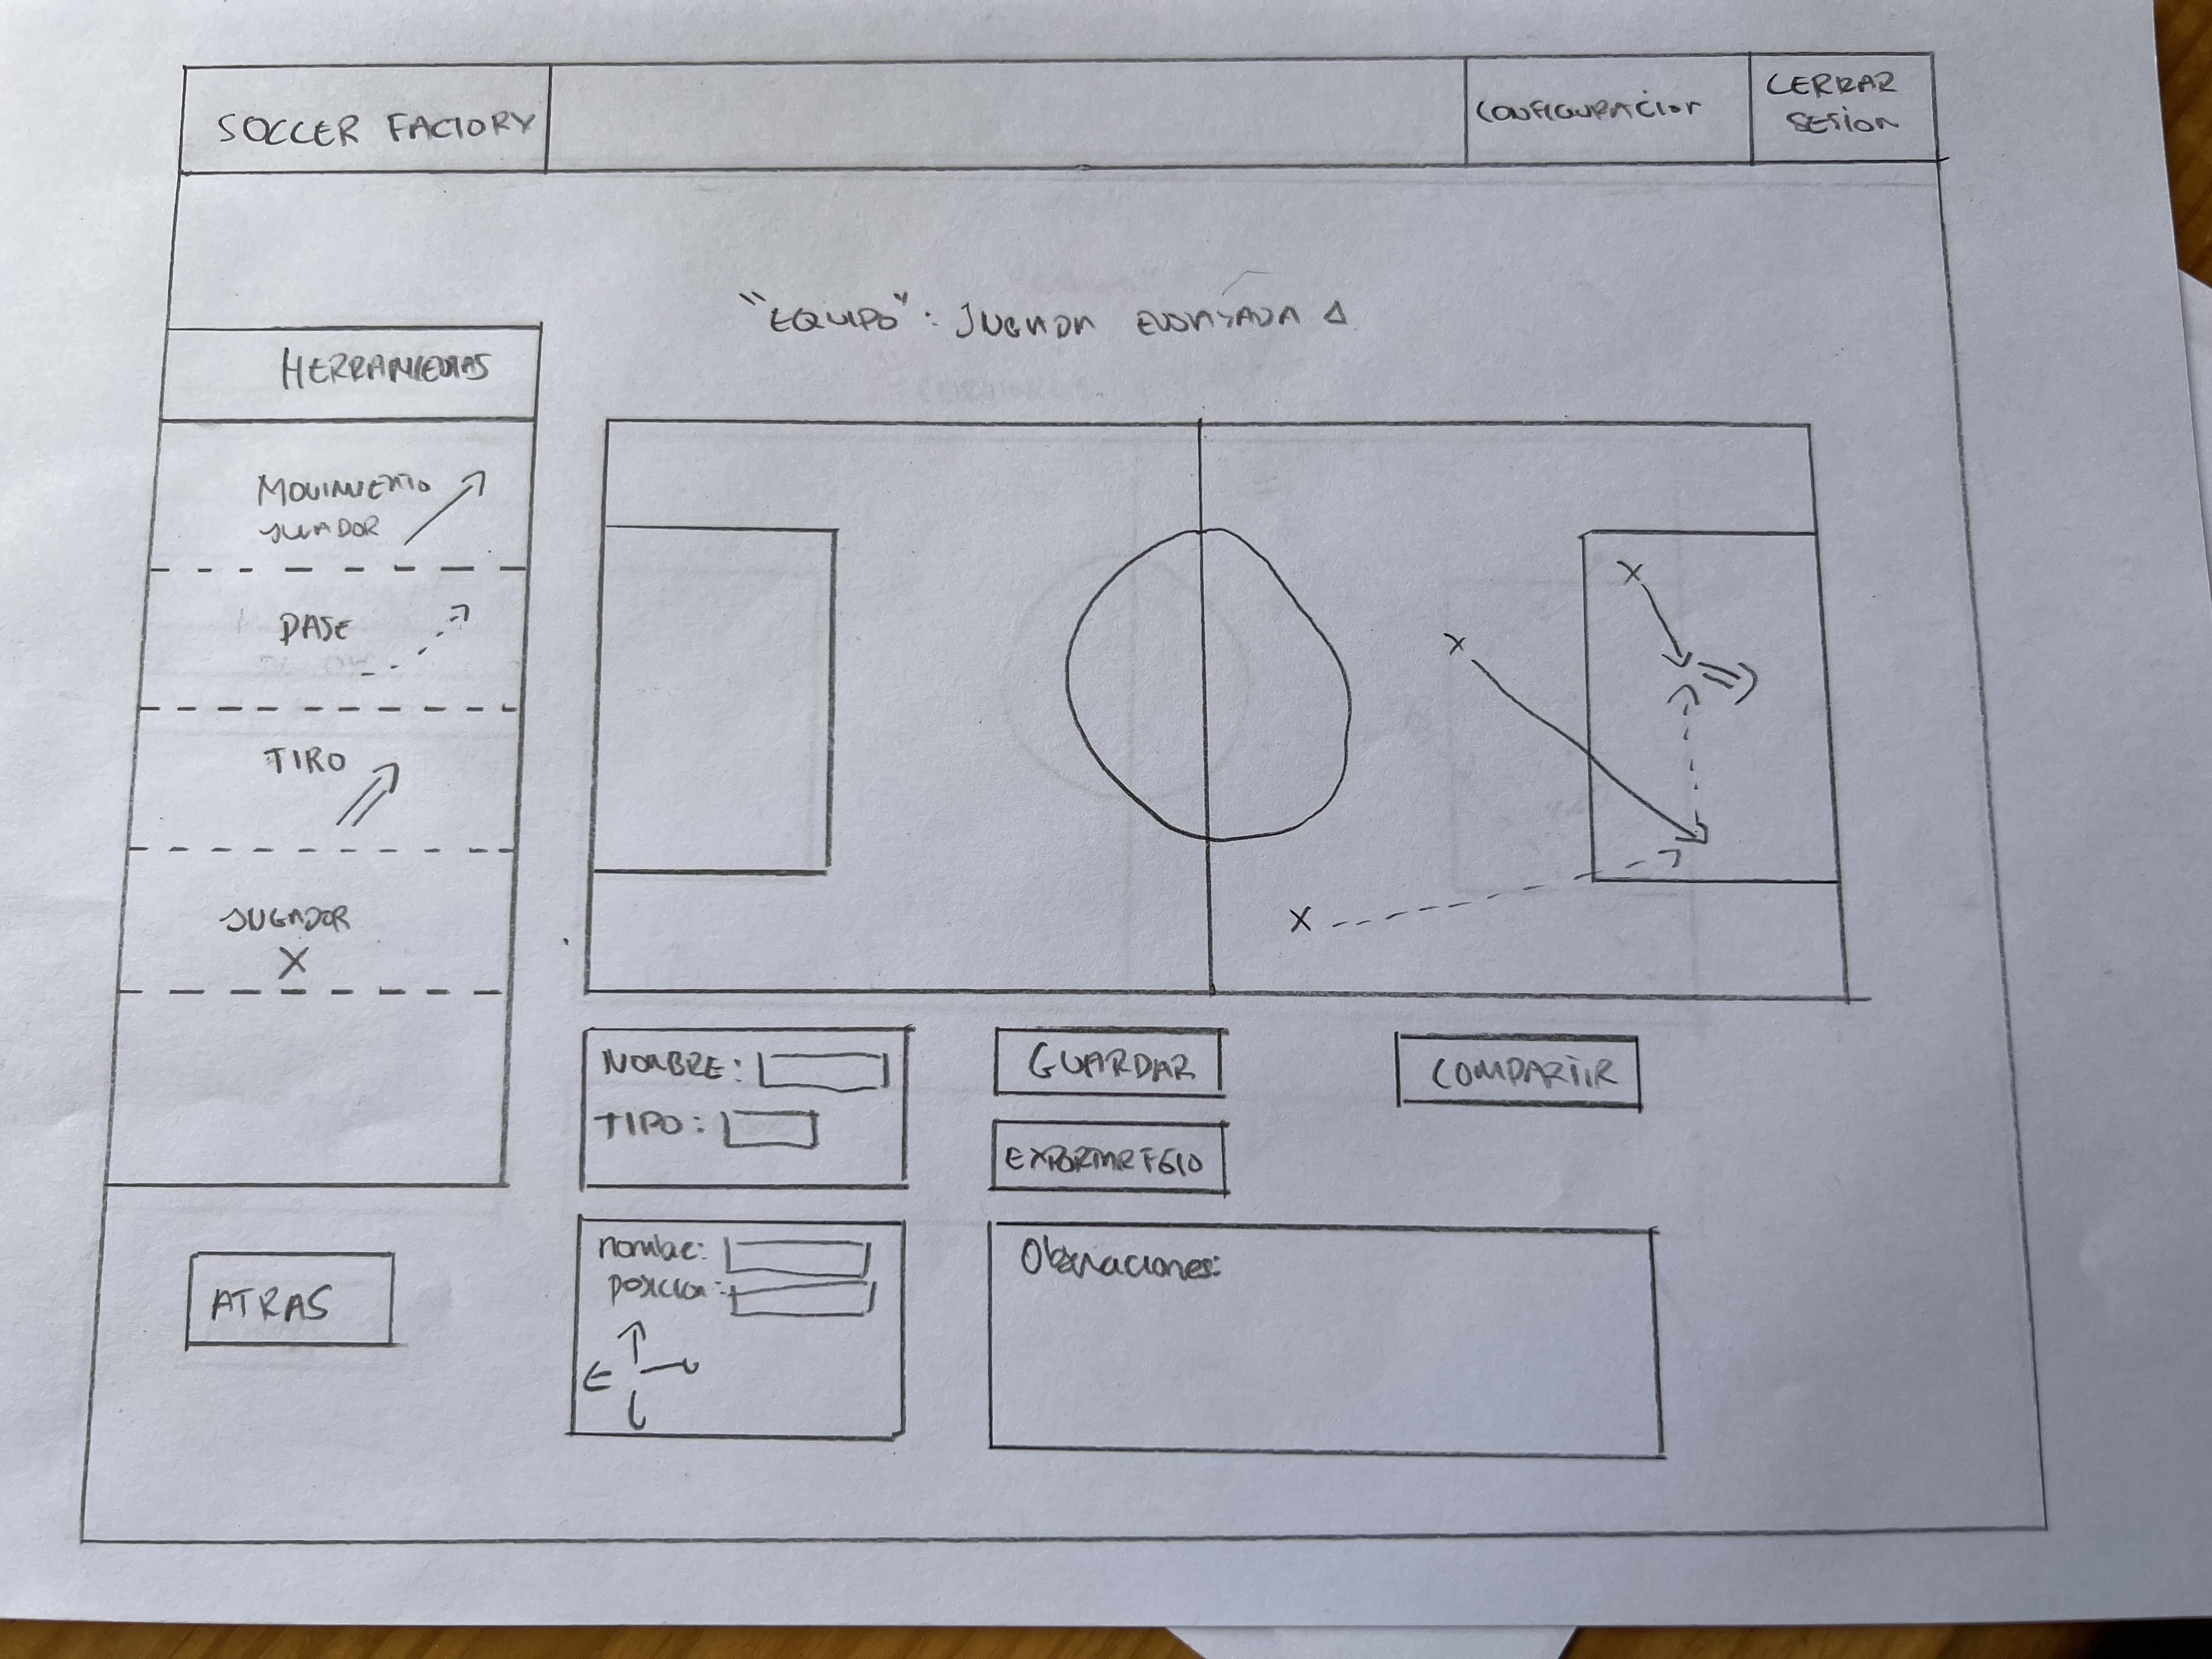 SOCCER FACTORY
CONFIGURACIÓN
CERRAR
SESIÓN
"EQUIPO": JUGADA ENSAYADA Δ
HERRAMIENTAS
MOVIMIENTO
JUGADOR
PASE
TIRO
JUGADOR
X
X
X
X
NOMBRE:
TIPO:
GUARDAR
EXPORTAR
COMPARTIR
nombre:
posicion:
Obsnaciones:
ATRAS